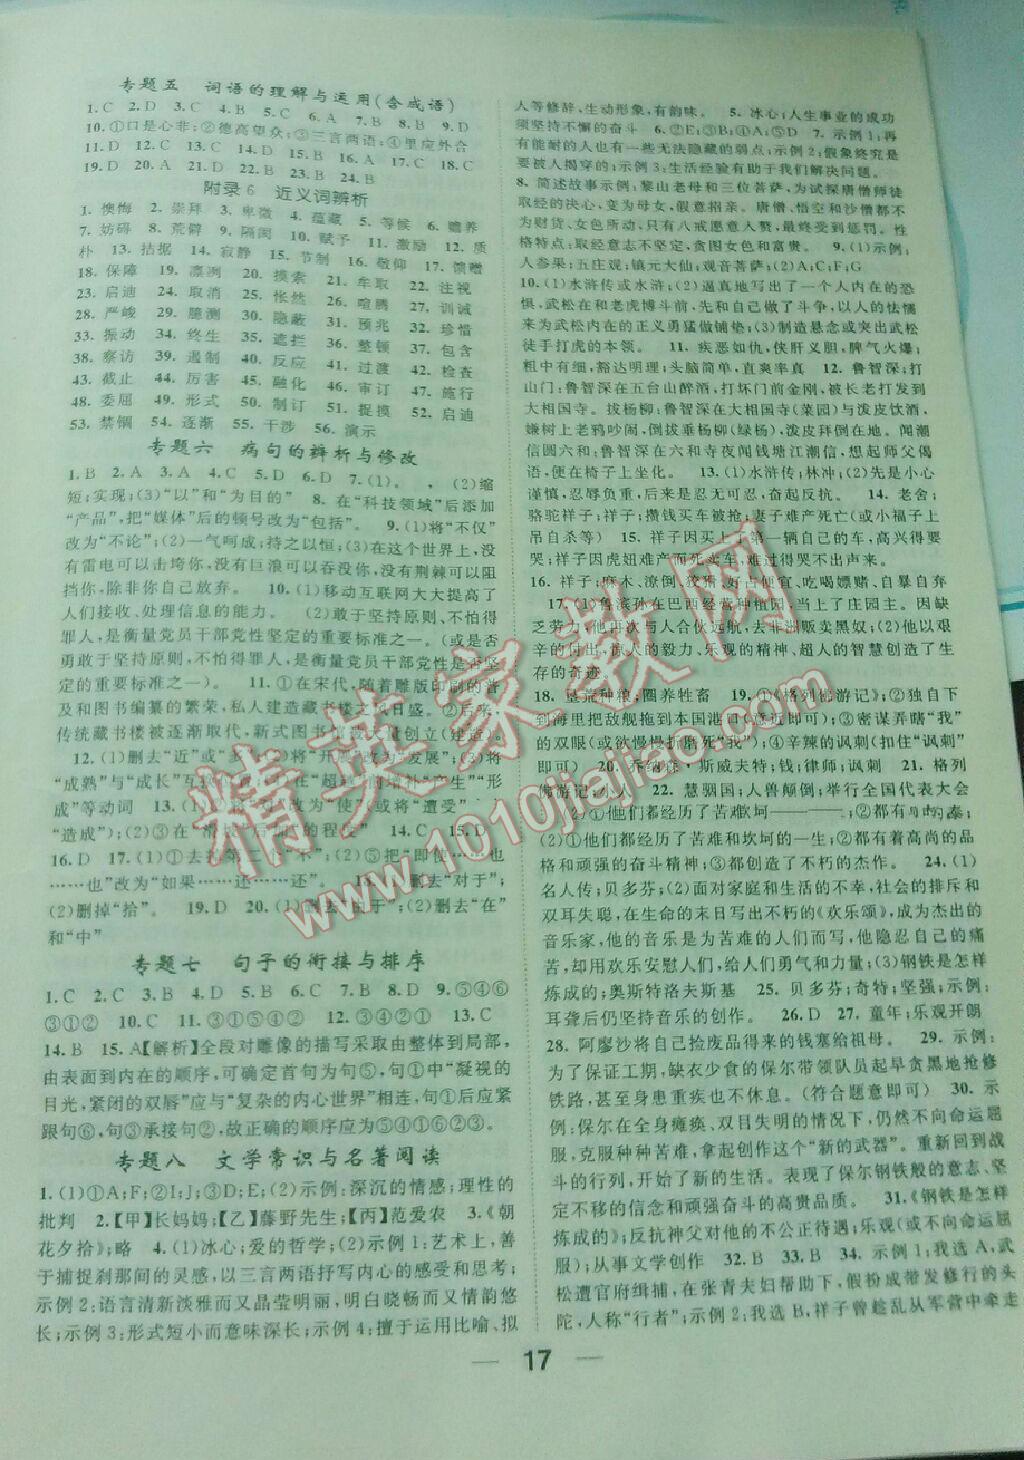 专题五 词语的理解与运用(含成语)
1.C 2.D 3.C 4.B 5.C 6.A 7.B 8.B 9.D
10.①口是心非;②德高望众;③三言两语;④里应外合
11.D 12.C 13.C 14.D 15.B 16.A 17.C 18.C
19.D 20.A 21.D 22.B 23.B 24.B
附录6 近义词辨析
1. 懊悔 2. 崇拜 3. 卑微 4. 蕴藏 5. 等候 6. 赡养
7. 妨碍 8. 荒僻 9. 隔阂 10. 赋予 11. 激励 12. 质
朴 13. 拮据 14. 寂静 15. 节制 16. 敬仰 17. 馈赠
18. 保障 19. 凛冽 20. 摸索 21. 牟取 22. 注视
23. 启迪 24. 取消 25. 怅然 26. 喧腾 27. 训诫
28. 严峻 29. 臆测 30. 隐蔽 31. 预兆 32. 珍惜
33. 振动 34. 终生 35. 遮拦 36. 整顿 37. 包含
38. 察访 39. 遏制 40. 反应 41. 过渡 42. 检查
43. 截止 44. 厉害 45. 融化 46. 审订 47. 施行
48. 委屈 49. 形式 50. 制订 51. 捉摸 52. 启迪
53. 禁锢 54. 逐渐 55. 干涉 56. 演示
专题六 病句的辨析与修改
1.B 2.A 3.A 4.C 5.D 6.D 7.(1)。 , (2)缩
短;实现;(3)“以”和“为目的” 8. 在“科技领域”后添加
“产品”,把“媒体”后的顿号改为“包括”。 9.(1)将“不仅”
改为“不论”;(2)一气呵成;持之以恒;(3)在这个世界上,没
有雷电可以击垮你,没有巨浪可以吞没你,没有荆棘可以阻
挡你,除非你自己放弃。 10.(1)移动互联网大大提高了
人们接收、处理信息的能力。 (2)敢于坚持原则,不怕得
罪人,是衡量党员干部党性坚定的重要标准之一。(或是否
勇敢于坚持原则,不怕得罪人,是衡量党员干部党性是否坚
定的重要标准之一)。 11.①在宋代,随着雕版印刷的普
及和图书编纂的繁荣,私人建造藏书楼之风日盛。②后来,
传统藏书楼被逐渐取代,新式图书馆被大量创立(建造)。
12.(1)删去“近”或“多”;(2)将“开展”改为“发展”;(3)将
“成熟”与“成长”互换;(4)在“超越”前增补“产生”“形
成”等动词 13.(1)①将“以”改为“使”(或将“遭受”
“造成”);(2)③在“滑坡”后加“的程度” 14.C 15.D
16.D 17.(1)①去掉第二个“不”;(2)⑤把“即使……也
……也”改为“如果……还……还”。 18.(1)删去“对于”;
(2)删掉“给”。 19.D 20.(1)删去“于”;(2)删去“在”
和“中”
专题七 句子的衔接与排序
1.C 2.C 3.B 4.D 5.B 6.C 7.B 8.D 9.⑤④⑥
③①② 10.C 11.③①⑤④② 12.③④②① 13.C
14.B 15.A【解析】全段对雕像的描写采取由整体到局部,
由表面到内在的顺序,可确定首句为句⑤,句①中“凝视的
目光,紧闭的双唇”应与“复杂的内心世界”相连,句①后应紧
跟句⑥,句③承接句①,故正确的顺序应为⑤④①⑥②③。
专题八 文学常识与名著阅读
1.(1)①A;F;②I;J;③D;E;(2)示例:深沉的情感;理性的
批判 2.【甲】长妈妈;【乙】藤野先生;【丙】范爱农 3.《朝
花夕拾》;略 4.(1)冰心;爱的哲学;(2)示例1:艺术上,善
于捕捉刹那间的灵感,以三言两语抒写内心的感受和思考;
示例2:语言清新淡雅而又晶莹明丽,明白晓畅而又情韵悠
长;示例3:形式短小而意味深长;示例4:擅于运用比喻、拟
人等修辞,生动形象,有韵味。 5. 冰心;人生事业的成功
须坚持不懈的奋斗 6.②E;③B;④A;⑤D 7. 示例1:再
有能耐的人也有一些无法隐藏的弱点;示例2:假象终究是
要被人揭穿的;示例3:生活经验有助于我们解决问题。
8. 简述故事示例:黎山老母和三位菩萨,为试探唐僧师徒
取经的决心,变为母女,假意招亲。唐僧、悟空和沙僧都不
为财货、女色所动,只有八戒愿意入赘,最终受到惩罚。性
格特点:取经意志不坚定,贪图女色和富贵。 9.(1)示例:
人参果;五庄观;镇元大仙;观音菩萨;(2)A;C;F;G
10.(1)水浒传或水浒;(2)逼真地写出了一个人内在的恐
惧,武松在和老虎博斗前,先和自己做了斗争,以人的怯懦
来为武松内在的正义勇猛做铺垫;(3)制造悬念或突出武松
徒手打虎的本领。 11. 疾恶如仇,侠肝义胆,脾气火爆;
粗中有细,豁达明理;头脑简单,直爽率真 12. 鲁智深;打
山门:鲁智深在五台山醉酒,打坏门前金刚,被长老打发到
大相国寺。拔杨柳:鲁智深在大相国寺(菜园)与泼皮饮酒,
嫌树上老鸦吵闹,倒拔垂杨柳(绿杨),泼皮拜倒在地。闻潮
信圆六和:鲁智深在六和寺夜闻钱塘江潮信,想起师父偈
语,便在椅子上坐化。 13.(1)水浒传;林冲;(2)先是小心
谨慎,忍辱负重,后来是忍无可忍,奋起反抗。 14. 老舍;
骆驼祥子;祥子;攒钱买车被抢;妻子难产死亡(或小福子上
吊自杀等) 15. 祥子因买上了第一辆自己的车,高兴得要
哭;祥子因虎妞难产而死买车,难过得哭不出声来。
16. 祥子;麻木、潦倒、狡猾、好占便宜、吃喝嫖赌、自暴自弃
17.(1)鲁滨孙在巴西经营种植园,当上了庄园主。因缺
乏劳力,他再次与人合伙远航,去非洲贩卖黑奴;(2)他以艰
辛的付出,惊人的毅力、乐观的精神、超人的智慧创造了生
存的奇迹。
18. 垦荒种粮;圈养牲畜 19.①《格列佛游记》;②独自下
到海里把敌舰拖到本国港口(意近即可);③密谋弄瞎“我”
的双眼(或欲慢慢折磨死“我”);④辛辣的讽刺(扣住“讽刺”
即可) 20. 乔纳森·斯威夫特;钱;律师;讽刺 21. 格列
佛游记;小人 22. 慧骃国;人兽颠倒;举行全国代表大会
(2)①他们都经历了苦难坎坷
(2)①他们都经历了苦难和坎坷的一生;②都有着高尚的品
格和顽强的奋斗精神;③都创造了不朽的杰作。 24.(1)
名人传;贝多芬;(2)面对家庭和生活的不幸,社会的排斥和
双耳失聪,在生命的末日写出不朽的《欢乐颂》,成为杰出的
音乐家,他的音乐是为苦难的人们而写,他隐忍自己的痛
苦,却用欢乐安慰人们,给人们勇气和力量;(3)钢铁是怎样
炼成的;奥斯特洛夫斯基 25. 贝多芬;奇特;坚强;示例:
耳聋后仍坚持音乐的创作。 26.D 27. 童年;乐观开朗
28. 阿廖沙将自己捡废品得来的钱塞给祖母。 29. 示例:
为了保证工期,缺衣少食的保尔带领队员起早贪黑地抢修
铁路,甚至身患重疾也不休息。(符合题意即可) 30. 示
例:保尔在全身瘫痪、双目失明的情况下,仍然不向命运屈
服,克服种种苦难,拿起创作这个“新的武器”。重新回到战
斗的行列,开始了新的生活。表现了保尔钢铁般的意志、坚
定不移的信念和顽强奋斗的高贵品质。 31.《钢铁是怎样
炼成的》;反抗神父对他的不公正待遇;乐观(或不向命运屈
服);从事文学创作 32.B 33.B 34. 示例1:我选A,武
松遭官府缉捕,在张青夫妇帮助下,假扮成带发修行的头
陀,人称“行者”;示例2:我选B,祥子曾趁乱从军营中牵走
17
精英家教网
www.1010jiajiao.com